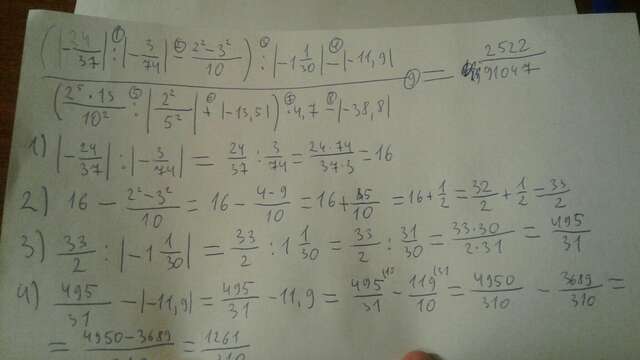 (|-24/37| : |-3/74| - (2² - 3²)/10) : |-1 1/30| - |-11,9|
= 2522/91047
((2⁵ · 13)/10² : |2²/5²| + |-13,5|) · 4,7 - |-38,8|
1) |-24/37| : |-3/74| = 24/37 : 3/74 = (24 · 74)/(37 · 3) = 16
2) 16 - (2² - 3²)/10 = 16 - (4 - 9)/10 = 16 + 5/10 = 16 + 1/2 = 32/2 + 1/2 = 33/2
3) 33/2 : |-1 1/30| = 33/2 : 1 1/30 = 33/2 : 31/30 = (33 · 30)/(2 · 31) = 495/31
4) 495/31 - |-11,9| = 495/31 - 11,9 = 495/31 - 119/10 = 4950/310 - 3689/310 =
= (4950 - 3689)/310 = 1261/310